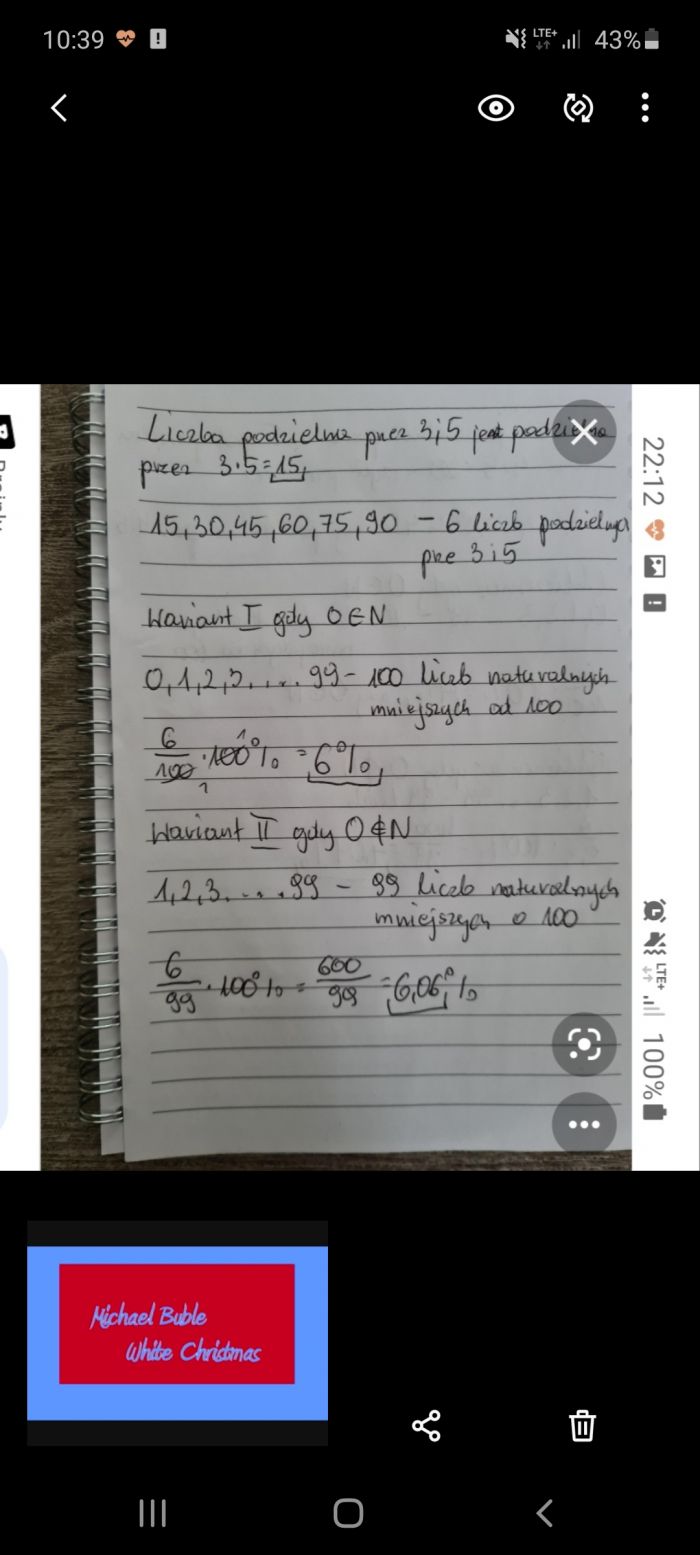 10:39
LTE+
43%
Liczba podzielna przez 3i5 jest podzielna
przez 3·5=15
15,30,45,60,75,90 – 6 liczb podzielnych
prze 3i5
Wariant I gdy 0∈N
0,1,2,3....99 – 100 liczb naturalnych
mniejszych od 100
6/100 · 100% = 6%
Wariant II gdy 0∉N
1,2,3....99 – 99 liczb naturalnych
mniejszych o 100
6/99 · 100% = 600/99 = 6,06%
22:12
LTE+
100%
Michael Buble
White Christmas